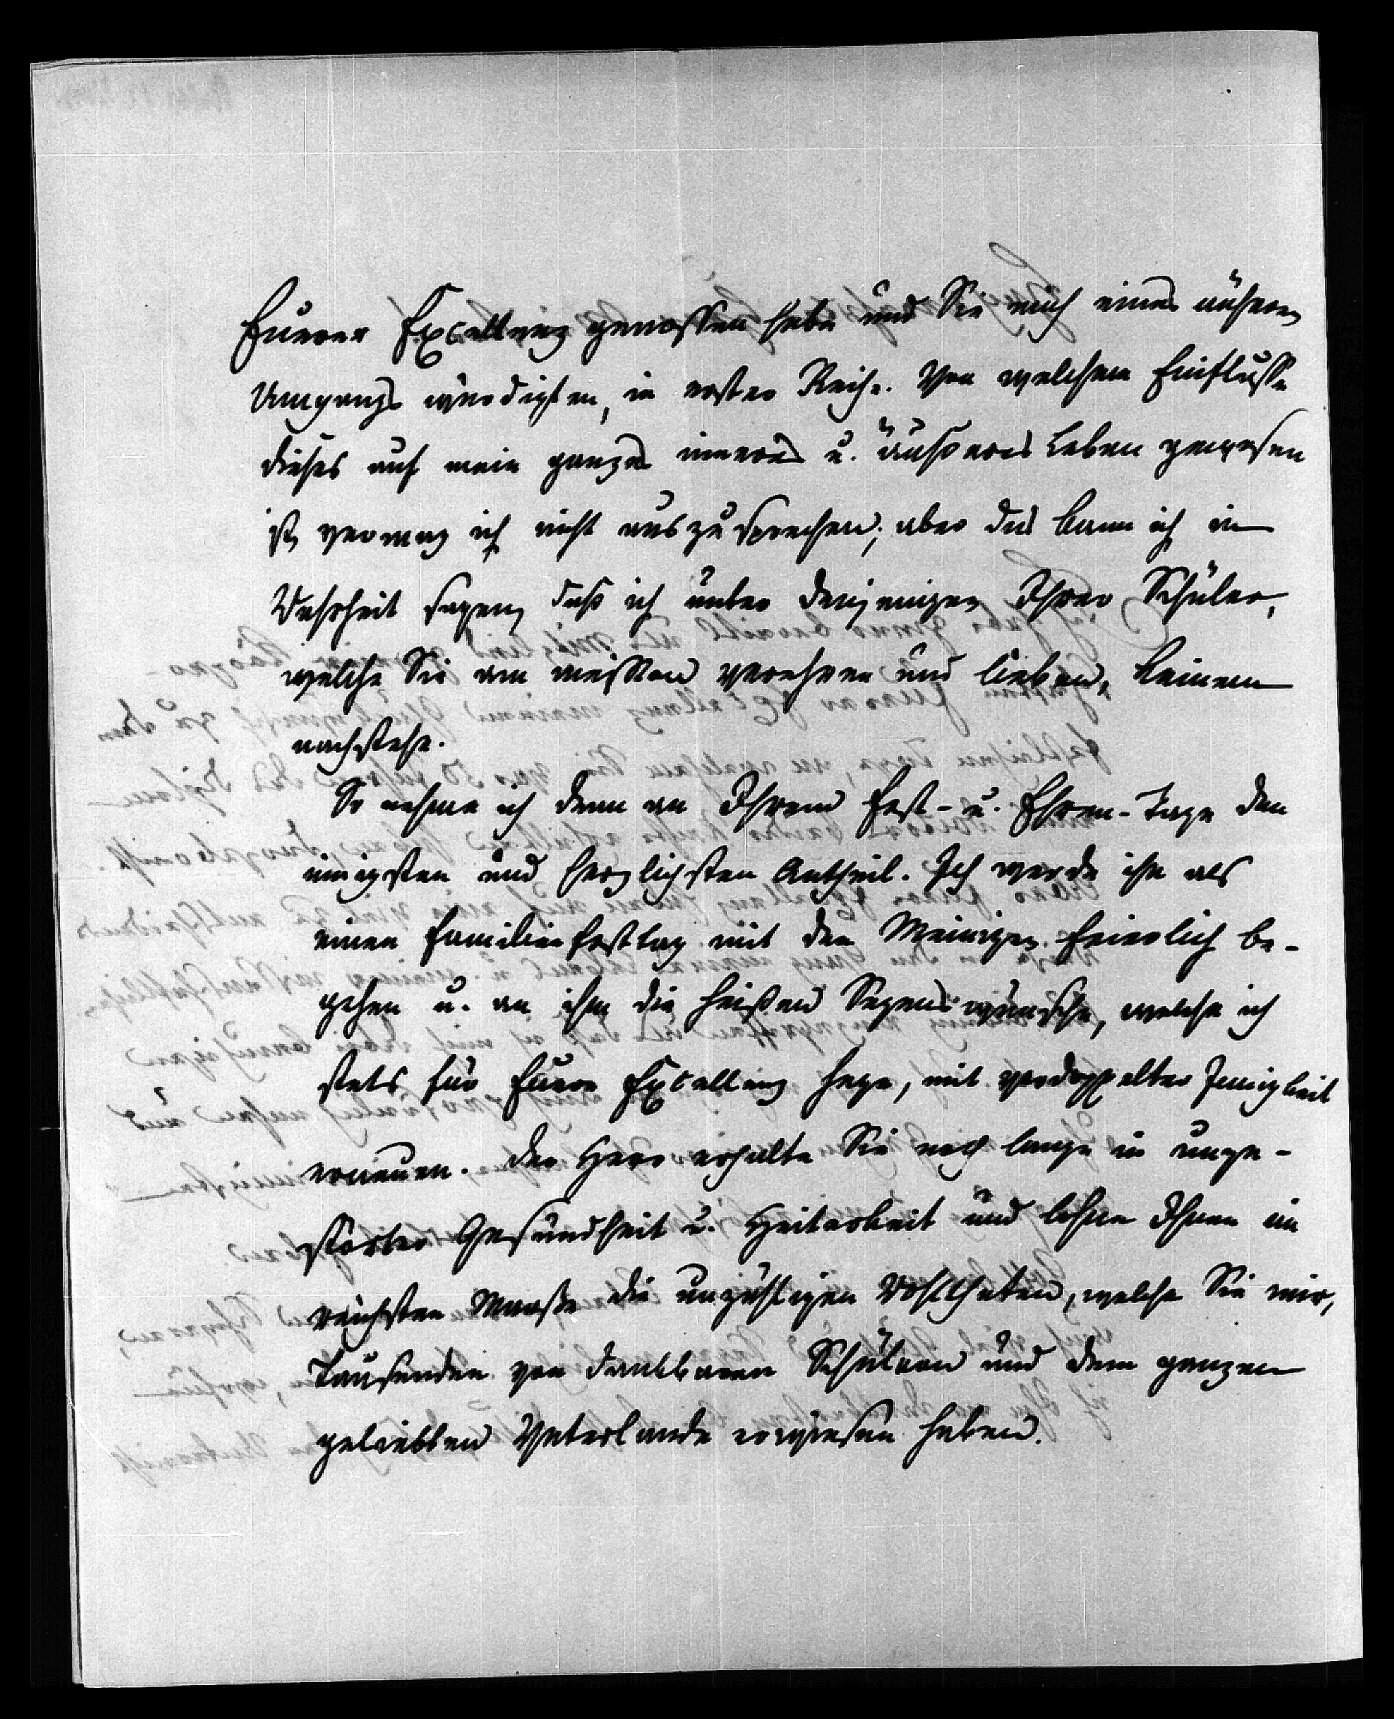 Euerer Excellenz genossen habe und Sie mich eines nähern
Umgangs würdigten, in erster Reihe. Von welchem Einflusse
dieses auf mein ganzes inneres u. äußeres Leben gewesen
ist, vermag ich nicht auszusprechen; aber das kann ich in
Wahrheit sagen, daß ich unter denjenigen Ihrer Schüler,
welche Sie am meisten verehren und lieben, keinem
nachstehe.
So nehme ich denn an Ihrem Fest- u. Ehren-Tage den
innigsten und herzlichsten Antheil. Ich werde ihn als
einen Familienfesttag mit den Meinigen feierlich be-
gehen u. an ihm die heißen Segenswünsche, welche ich
stets für Euere Excellenz hege, mit verdoppelter Innigkeit
erneuen. Der Herr erhalte Sie noch lange in unge-
störter Gesundheit u. Heiterkeit und lohne Ihnen im
reichsten Maaße die unzähligen Wohlthaten, welche Sie mir,
Tausenden von dankbaren Schülern und dem ganzen
geliebten Vaterlande erwiesen haben.